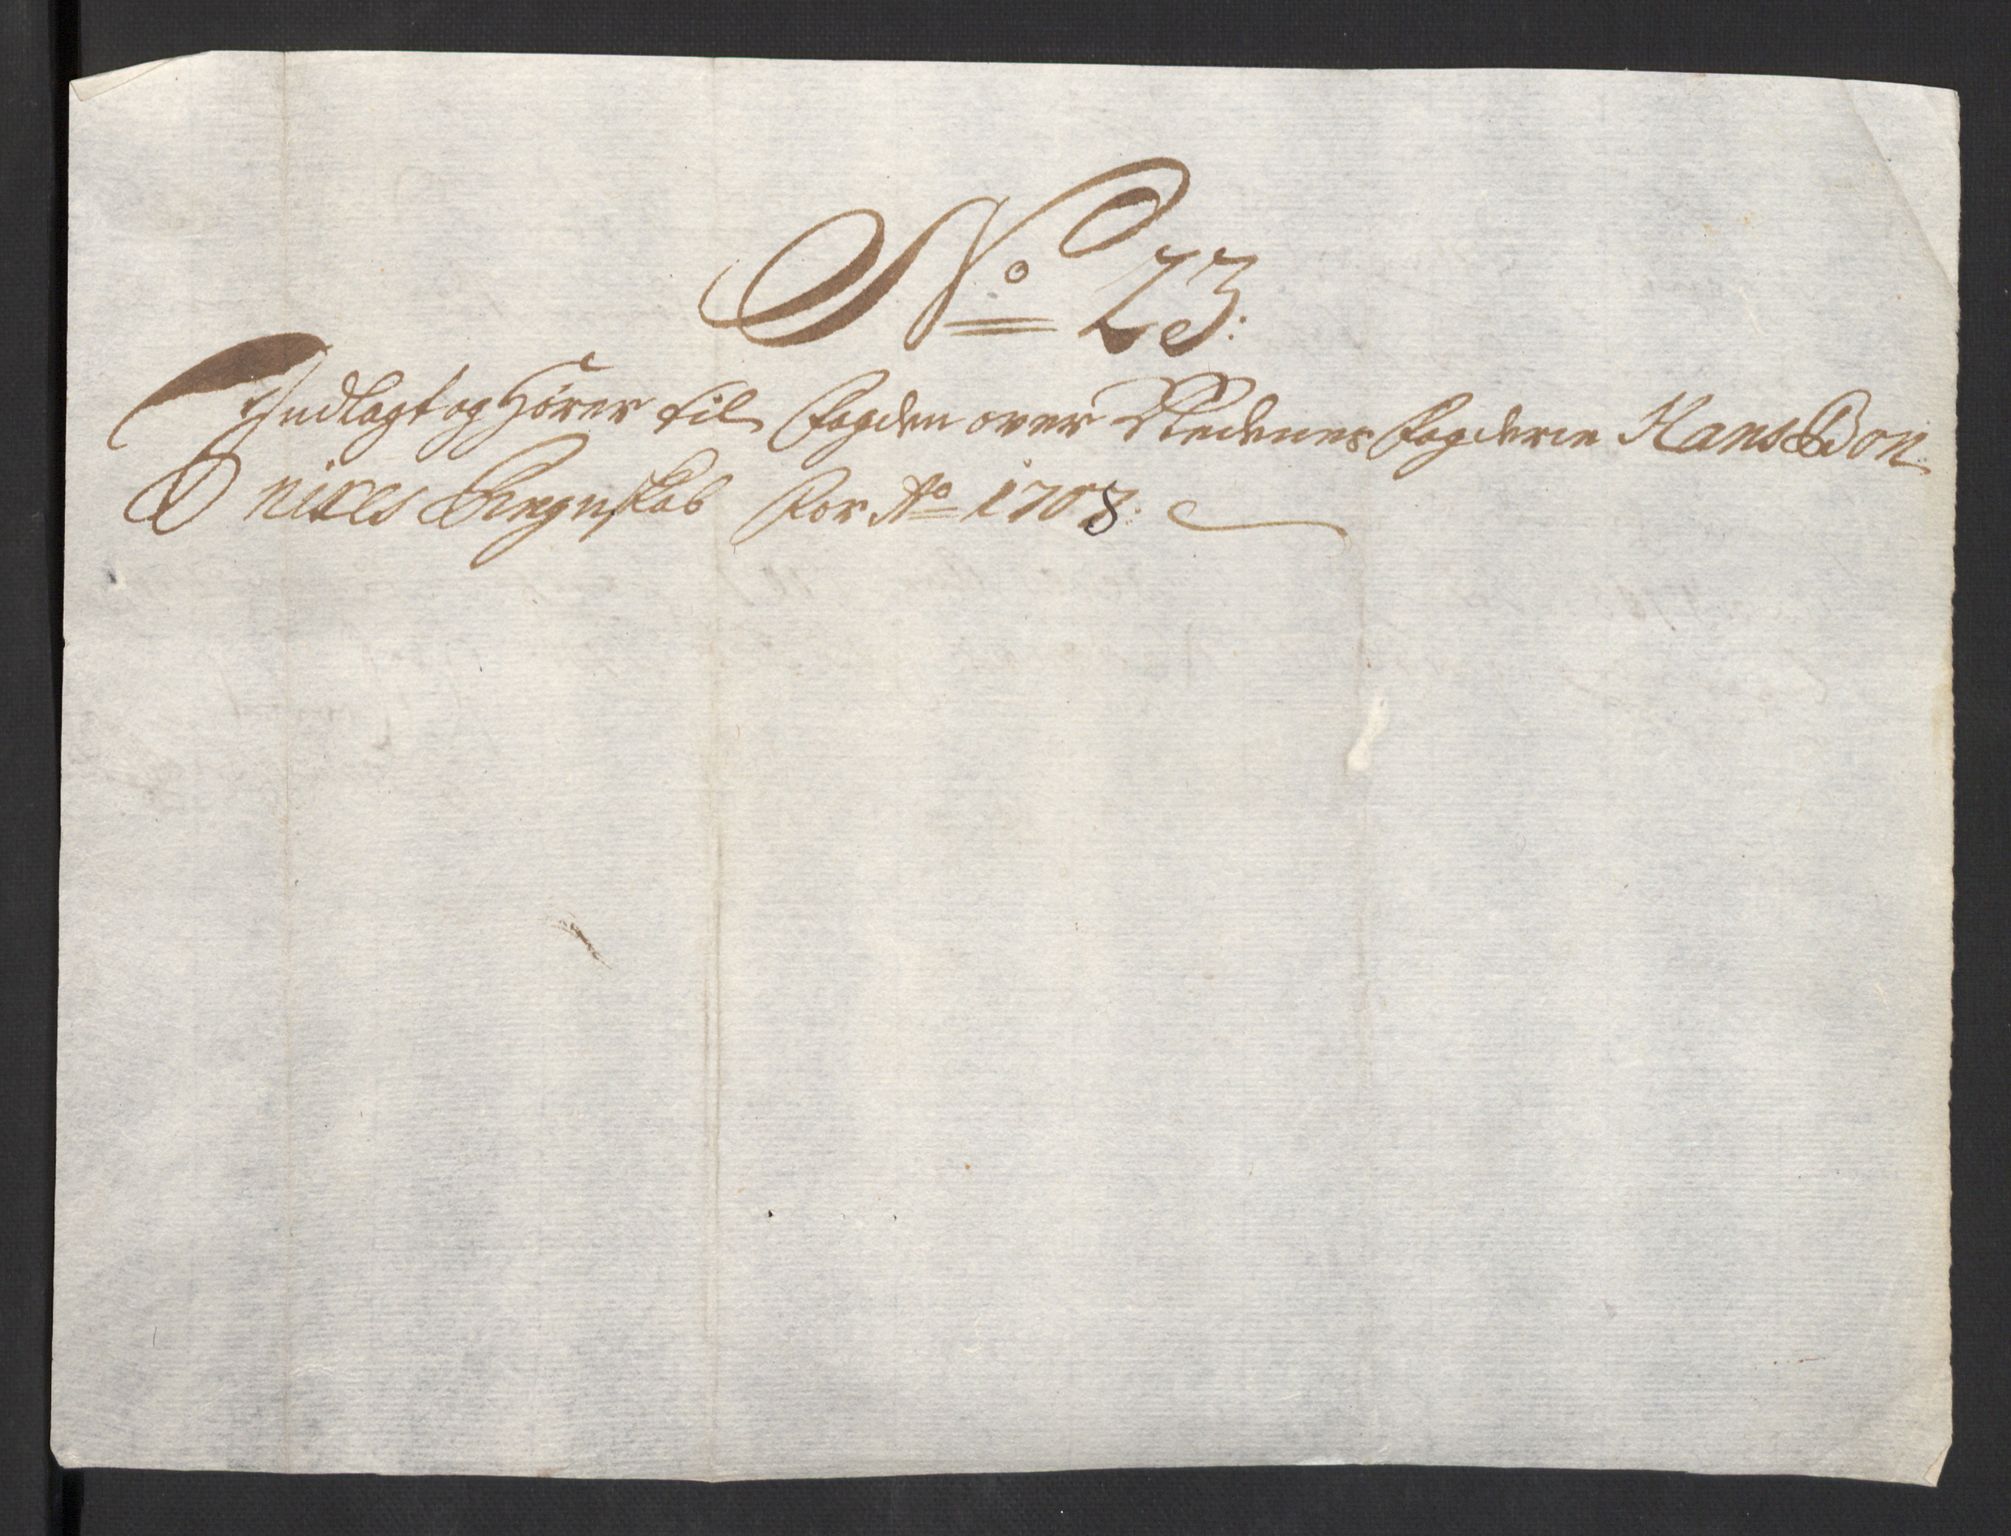 No 23.
Indlagt og Hører til Fogden over Nedenes Fogderie Hans Bon
nixes Regnskab for Ao 1708.